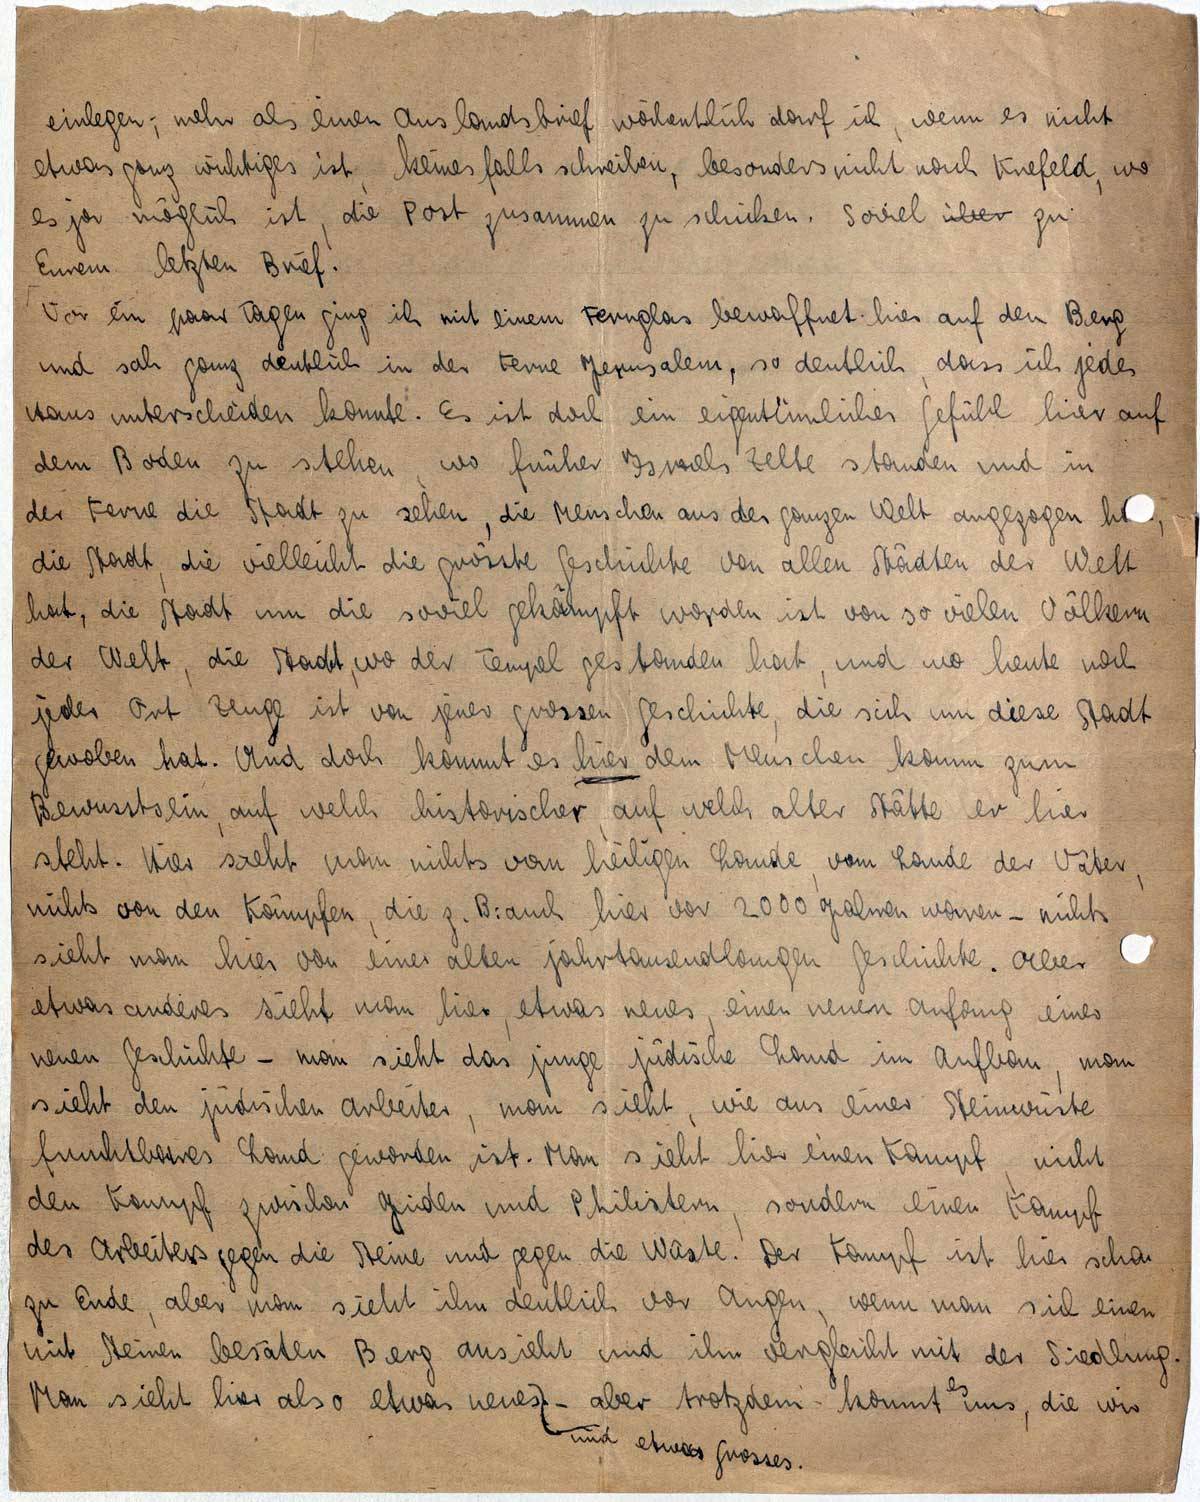 einlegen; mehr als einen Auslandsbrief wöchentlich darf ich, wenn es nicht
etwas ganz wichtiges ist, keinesfalls schreiben, besonders nicht nach Krefeld, wo
es ja möglich ist, die Post zusammen zu schicken. Soviel über zu
Eurem letzten Brief.
Vor ein paar Tagen ging ich mit einem Fernglas bewaffnet hier auf den Berg
und sah ganz deutlich in der Ferne Jerusalem, so deutlich, dass ich jedes
Haus unterscheiden konnte. Es ist doch ein eigentümliches Gefühl hier auf
dem Boden zu stehen, wo früher Israels Zelte standen und in
der Ferne die Stadt zu sehen, die Menschen aus der ganzen Welt angezogen
die Stadt, die vielleicht die grösste Geschichte von allen Städten der Welt
hat, die Stadt um die soviel gekämpft worden ist von so vielen Völkern
der Welt, die Stadt, wo der Tempel gestanden hat, und wo heute noch
jeder Ort Zeuge ist von jener grossen Geschichte, die sich um diese Stadt
gewoben hat. Und doch kommt es hier dem Menschen kaum zum
Bewusstsein, auf welch historischer, auf welch alter Stätte er hier
steht. Hier sieht man nichts vom heiligen Lande, vom Lande der Väter,
nichts von den Kämpfen, die z. B. auch hier vor 2000 Jahren waren – nichts
sieht man hier von einer alten jahrtausendlangen Geschichte. Aber
etwas anderes sieht man hier, etwas neues, einen neuen Anfang einer
neuen Geschichte – man sieht das junge jüdische Land im Aufbau, man
sieht den jüdischen Arbeiter, man sieht, wie aus einer Steinwüste
fruchtbares Land geworden ist. Man sieht hier einen Kampf, nicht
den Kampf zwischen Juden und Philistern, sondern einen Kampf
des Arbeiters gegen die Steine und gegen die Wüste. Der Kampf ist hier schon
zu Ende, aber man sieht ihn deutlich vor Augen, wenn man sich einen
mit Steinen besäten Berg ansieht und ihn vergleicht mit der Siedlung.
Man sieht hier also etwas neues – aber trotzdem kommt es uns, die wir
und etwas grosses.